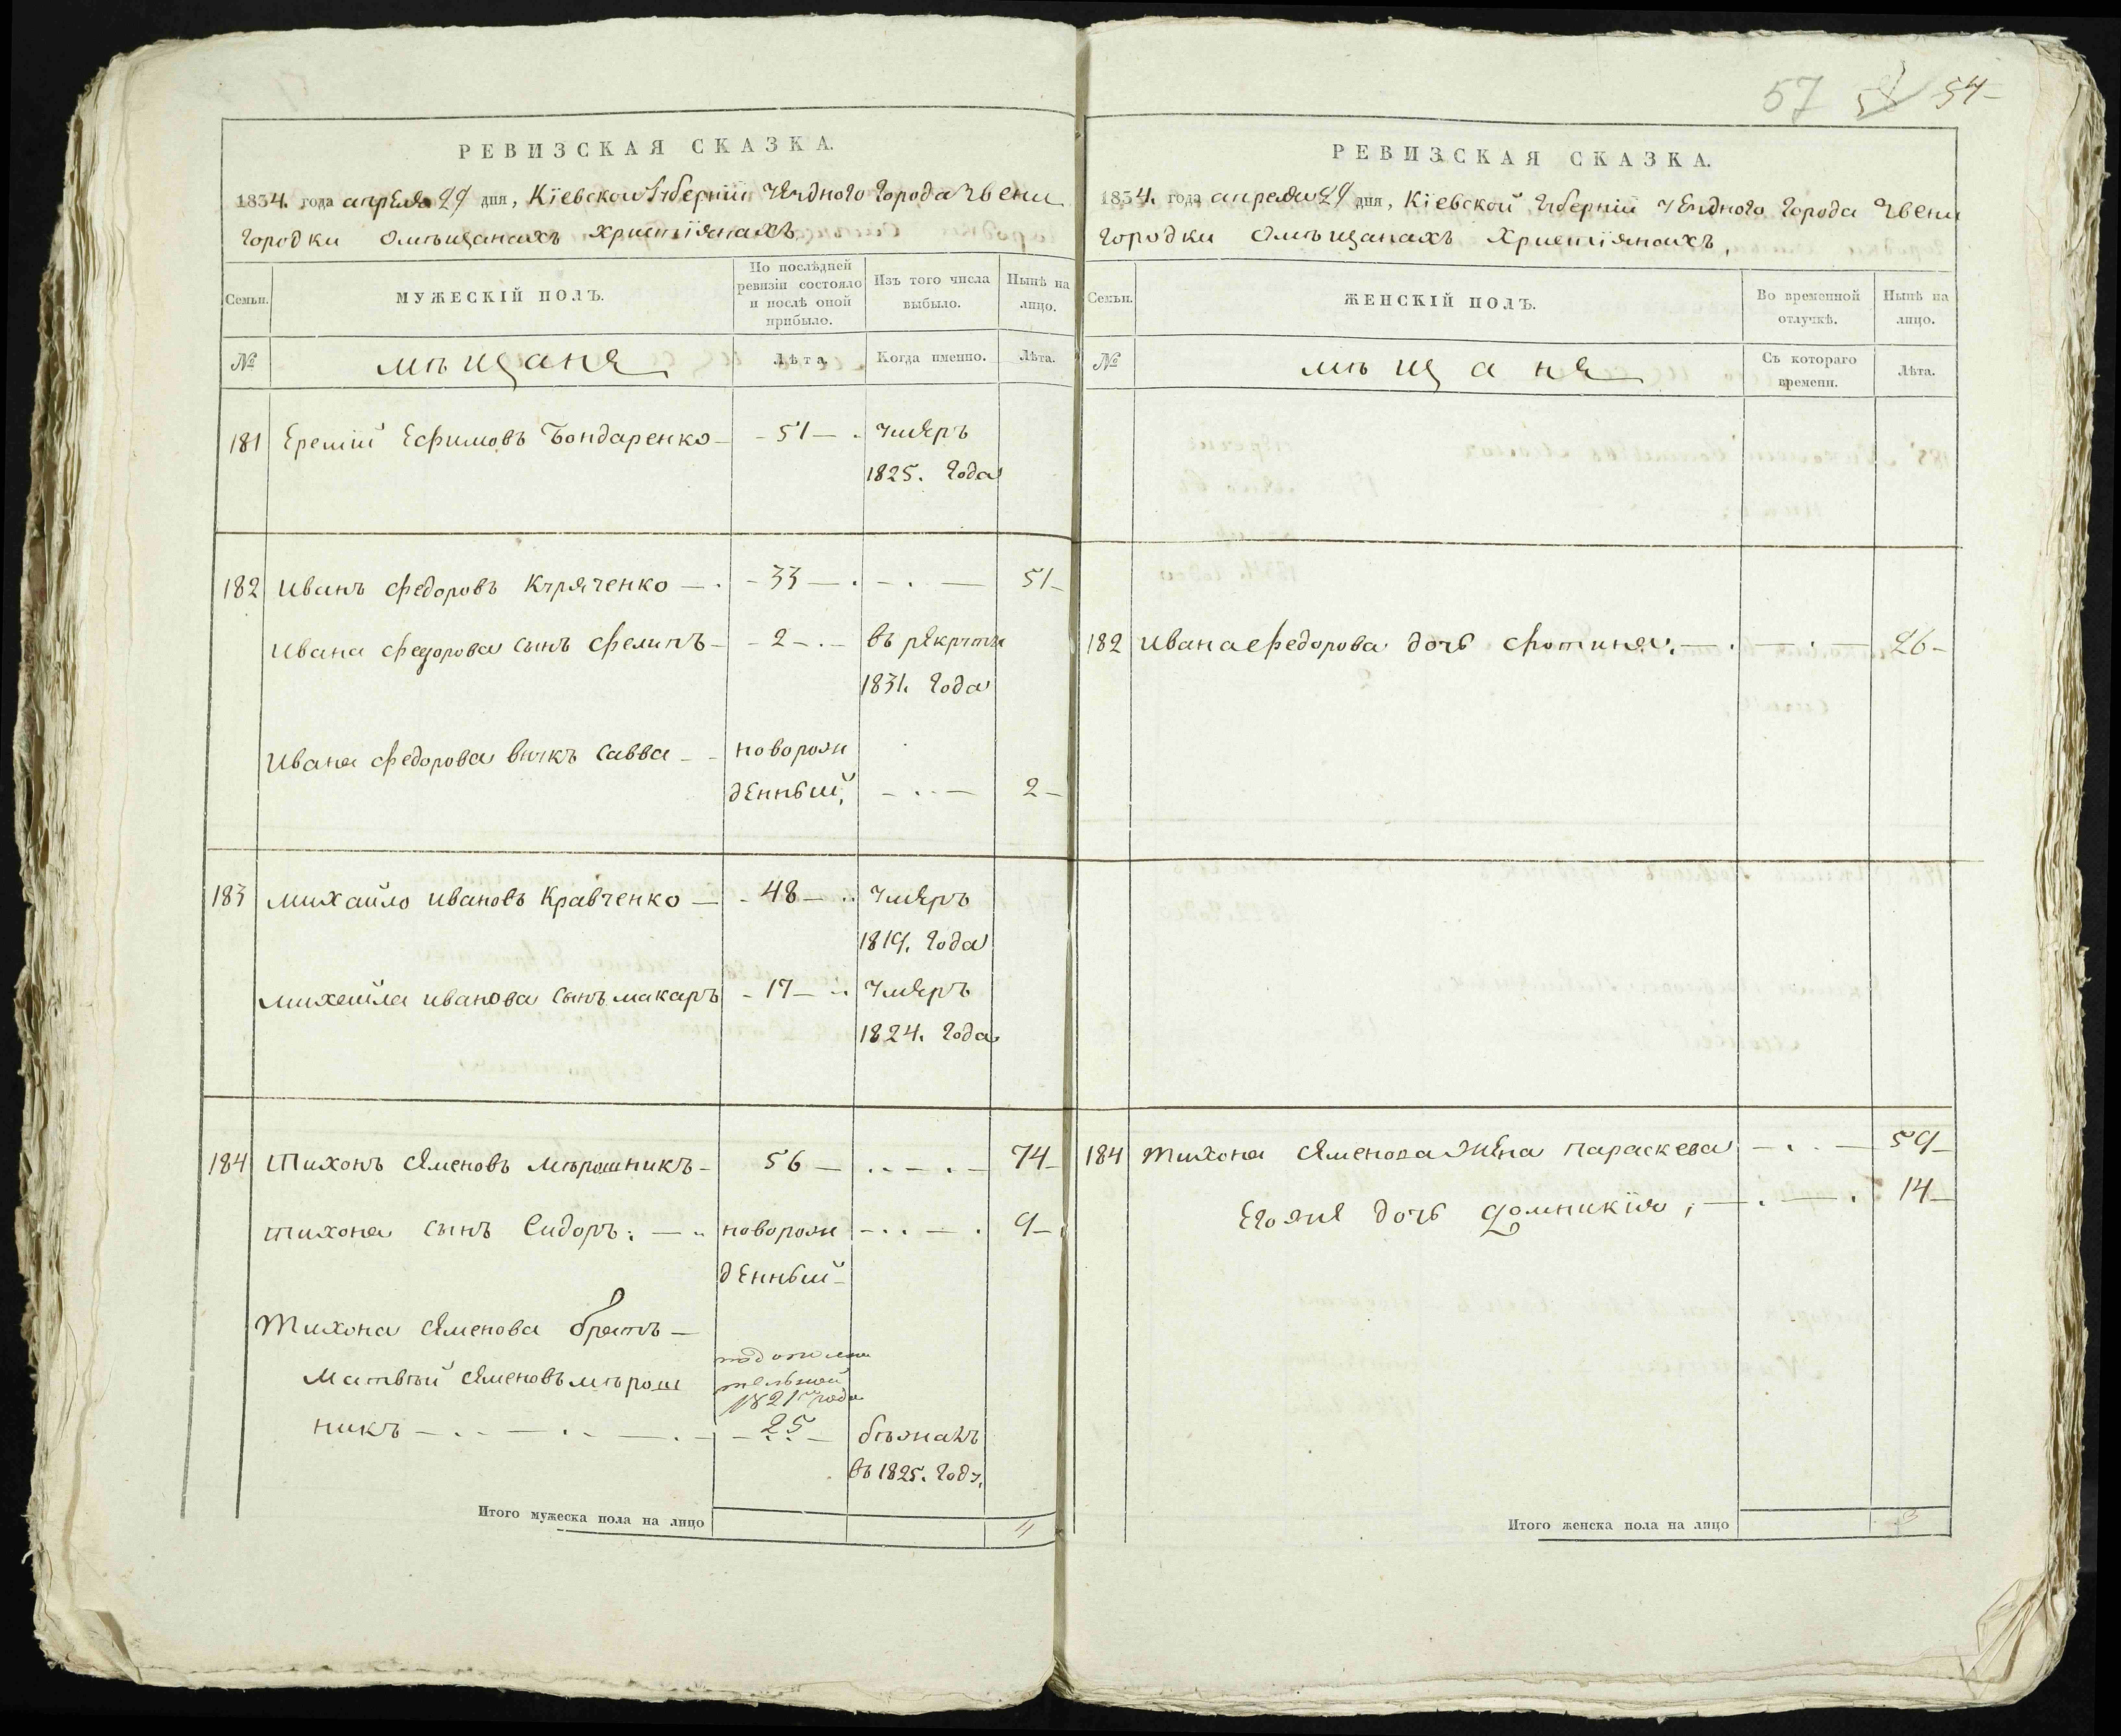 57 54 54
РЕВИЗСКАЯ СКАЗКА.
1834. года апреля 29 дня, Кїевской Губернїи уезднаго города Звени
городки омѣщанахъ христїянахъ
Семьи.
МУЖЕСКІЙ ПОЛЪ.
По послѣдней ревизіи состояло и послѣ оной прибыло.
Изъ того числа выбыло.
Нынѣ на лицо.
№
мѣщане
Лѣта.
Когда именно.
Лѣта.
181 Еремѣй Ефимовъ Бондаренко — 51 — умеръ
1825. года
182 Иванъ Федоровъ Куряченко — 33 — 51
Ивана Федорова сынъ Филипъ — 2 — въ рекруты
1831. года
Ивана Федорова внукъ Савва — новорож
денный, — 2
183 Михайло Ивановъ Кравченко — 48 — умеръ
1819. года
Михайла Иванова сынъ Макаръ — 17 — умеръ
1824. года
184 Тихонъ Семеновъ Мѣрошникъ — 56 — 74
Тихона сынъ Сидоръ: — новорож — 9
денный
Тихона Семенова братъ —
Матвѣй Семеновъ мѣрош
подополни
тельной
1821 года
никъ — 25 — бѣжалъ
въ 1825. году.
Итого мужеска пола на лицо 4
РЕВИЗСКАЯ СКАЗКА.
1834. года апреля 29 дня, Кїевской Губернїи уезднаго города Звени
городки омѣщанахъ христїянахъ,
Семьи.
ЖЕНСКІЙ ПОЛЪ.
Во временной отлучкѣ.
Нынѣ на лицо.
№
мѣщане
Съ котораго времени.
Лѣта.
182 Ивана Федорова дочь Фотиния. — 26
184 Тихона Семенова жена Параскева — 59
Его же дочь Домникїя, — 14
Итого женска пола на лицо 3